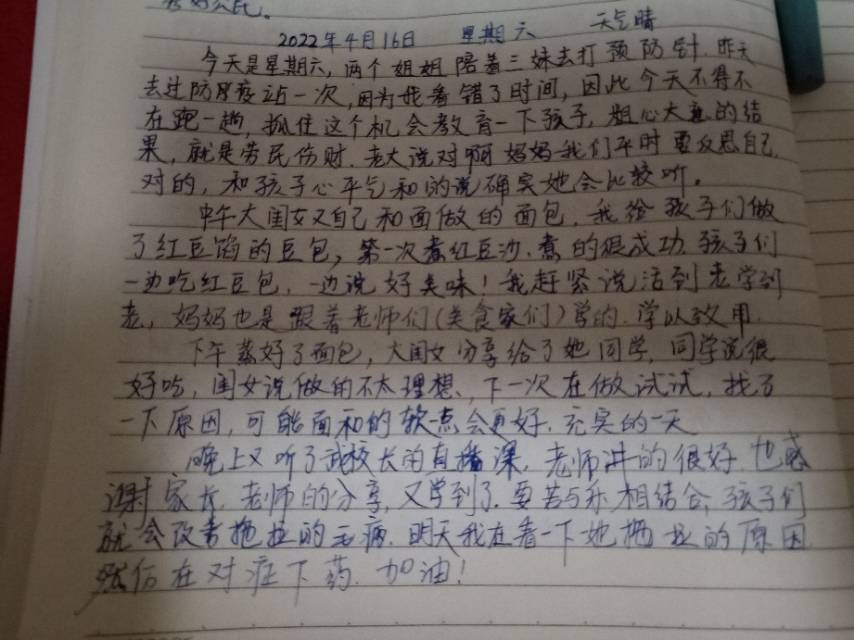 考好公民。
2022年4月16日 星期六 天气晴
今天是星期六，两个姐姐陪着三妹去打预防针.昨天
去过防疫站一次，因为我看错了时间，因此今天不得不
在跑一趟，抓住这个机会教育一下孩子，粗心大意的结
果，就是劳民伤财.老大说对啊妈妈我们平时要反思自己.
对的，和孩子心平气和的说确实她会比较听。
中午大闺女又自己和面做的面包，我给孩子们做
了红豆馅的豆包，第一次煮红豆沙.煮的很成功.孩子们
一边吃红豆包，一边说好美味！我赶紧说活到老学到
老，妈妈也是跟着老师们(美食家们)学的.学以致用.
下午蒸好了面包，大闺女分享给了她同学，同学说很
好吃，闺女说做的不太理想、下一次在做试试，找了
一下原因，可能面和的软一点会更好.充实的一天
晚上又听了武校长的直播课，老师讲的很好.也感
谢家长.老师的分享，又学到了.要苦与乐相结合，孩子们
就会改考拖拉的毛病.明天我在看一下她拖拉的原因
然后在对症下药.加油！